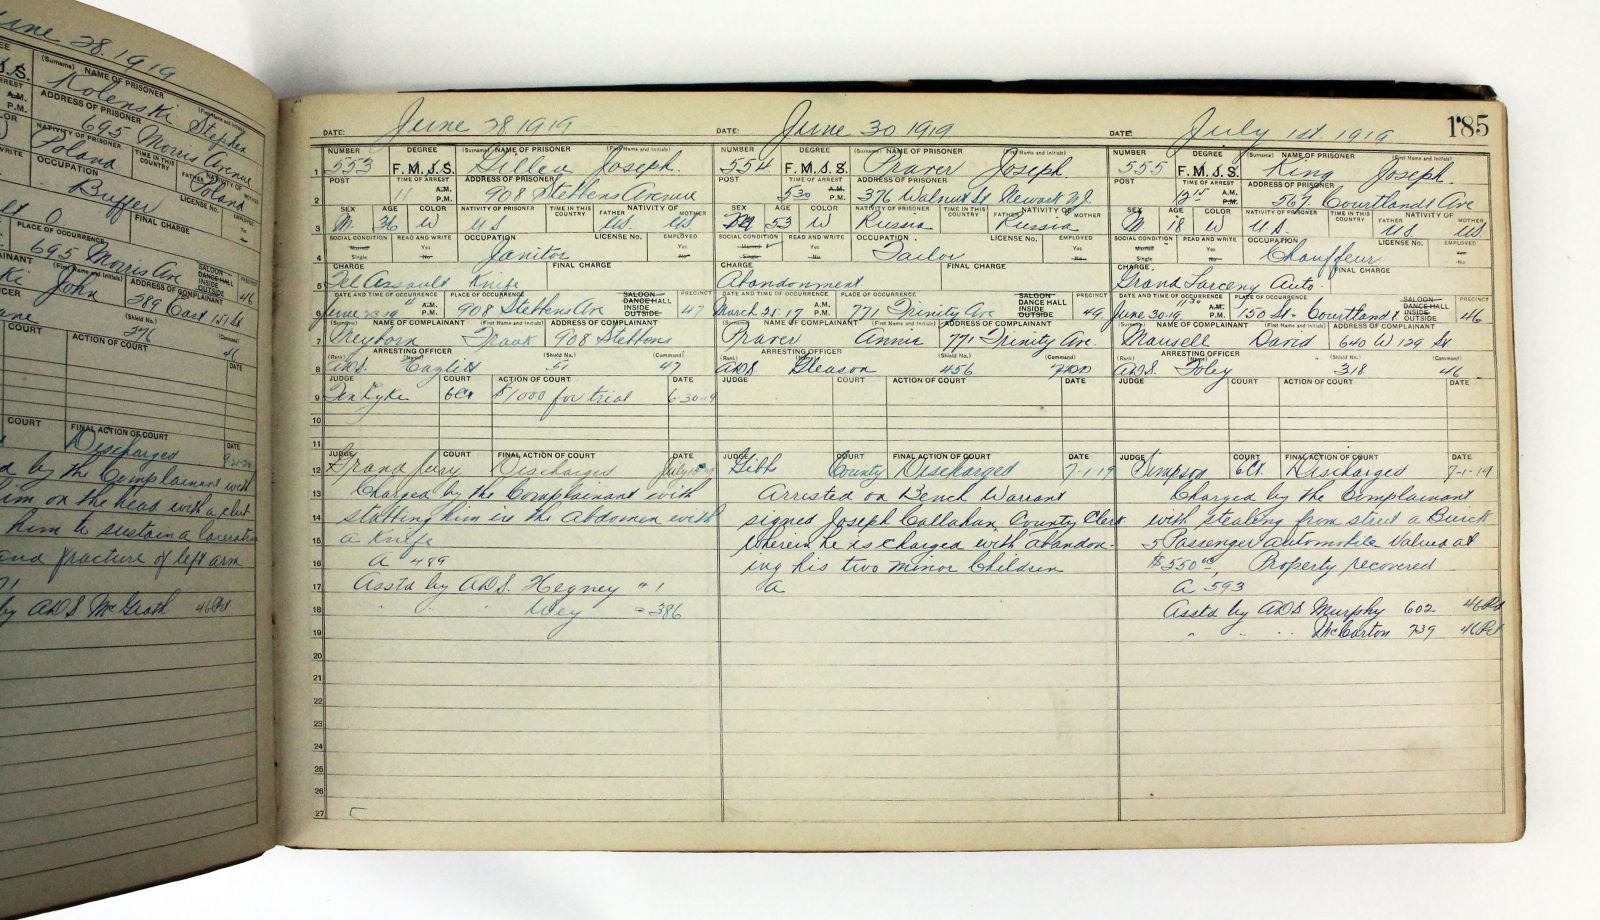 June 28. 1919
(Surname) NAME OF PRISONER (First Name and Initials)
Kolenski Stephen
ADDRESS OF PRISONER
695 Morris Avenue
NATIVITY OF PRISONER TIME IN THIS COUNTRY FATHER NATIVITY OF
Poland Poland
OCCUPATION LICENSE No.
Buffer
FINAL CHARGE
PLACE OF OCCURRENCE SALOON DANCE HALL INSIDE OUTSIDE
695 Morris Av 46
(First Name and Initials) ADDRESS OF COMPLAINANT
John 389 East 151 St
(Shield No.)
276
COURT ACTION OF COURT DATE
COURT FINAL ACTION OF COURT DATE
Discharged
by the Complainant with
him on the head with a
him to sustain a laceration
and fracture of left arm
by ADS McGrath 46 Pct
185
DATE: June 28 1919
NUMBER DEGREE (Surname) NAME OF PRISONER (First Name and Initials)
553 F. M. J. S. Joseph.
POST TIME OF ARREST ADDRESS OF PRISONER
11 A.M. P.M. 908 Stebbens Avenue
SEX AGE COLOR NATIVITY OF PRISONER TIME IN THIS COUNTRY FATHER NATIVITY OF MOTHER
M 36 W US US US
SOCIAL CONDITION READ AND WRITE OCCUPATION LICENSE No. EMPLOYED
Married Single Yes No Janitor Yes No
CHARGE FINAL CHARGE
Fel Assault Knife
DATE AND TIME OF OCCURRENCE PLACE OF OCCURRENCE SALOON DANCE HALL INSIDE OUTSIDE PRECINCT
A.M. P.M. 908 Stebbens Av 47
(Surname) NAME OF COMPLAINANT (First Name and Initials) ADDRESS OF COMPLAINANT
Frank 908 Stebbens
(Rank) ARRESTING OFFICER (Name) (Shield No.) (Command)
ADS. 51 47
JUDGE COURT ACTION OF COURT DATE
Ten Eyke 6 Ct $1000 for trial 6-30-19
JUDGE COURT FINAL ACTION OF COURT DATE
Grand Jury Discharged
Charged by the Complainant with
stabbing him in the abdomen with
a Knife
A 499
Asstd by ADS. Hegney " 1
" " " Wey = 386
DATE: June 30 1919
NUMBER DEGREE (Surname) NAME OF PRISONER (First Name and Initials)
554 F. M. J. S. Fraver Joseph.
POST TIME OF ARREST ADDRESS OF PRISONER
5 30 A.M. P.M. 376 Walnut St Newark NJ.
SEX AGE COLOR NATIVITY OF PRISONER TIME IN THIS COUNTRY FATHER NATIVITY OF MOTHER
M 53 W Russia Russia
SOCIAL CONDITION READ AND WRITE OCCUPATION LICENSE No. EMPLOYED
Married Single Yes No Tailor Yes No
CHARGE FINAL CHARGE
Abandonment
DATE AND TIME OF OCCURRENCE PLACE OF OCCURRENCE SALOON DANCE HALL INSIDE OUTSIDE PRECINCT
A.M. P.M. 771 Trinity Ave 49
(Surname) NAME OF COMPLAINANT (First Name and Initials) ADDRESS OF COMPLAINANT
Fraver Annie 771 Trinity Ave.
(Rank) ARRESTING OFFICER (Name) (Shield No.) (Command)
ADS. Gleason 456
JUDGE COURT ACTION OF COURT DATE
JUDGE COURT FINAL ACTION OF COURT DATE
Gibbs County Discharged 7-1-19
Arrested on Bench Warrant
signed Joseph Callahan, County Clerk
Wherein he is charged with abandon-
ing his two minor Children
A
DATE: July 1st 1919
NUMBER DEGREE (Surname) NAME OF PRISONER (First Name and Initials)
555 F. M. J. S. King Joseph.
POST TIME OF ARREST ADDRESS OF PRISONER
12 15 A.M. P.M. 567 Courtlandt Ave
SEX AGE COLOR NATIVITY OF PRISONER TIME IN THIS COUNTRY FATHER NATIVITY OF MOTHER
M 18 W U.S. US US
SOCIAL CONDITION READ AND WRITE OCCUPATION LICENSE No. EMPLOYED
Married Single Yes No Chauffeur Yes No
CHARGE FINAL CHARGE
Grand Larceny Auto.
DATE AND TIME OF OCCURRENCE PLACE OF OCCURRENCE SALOON DANCE HALL INSIDE OUTSIDE PRECINCT
June 30-19. 11 30 A.M. P.M. 150 St - Courtlandt 46
(Surname) NAME OF COMPLAINANT (First Name and Initials) ADDRESS OF COMPLAINANT
Mansell David 640 W 129 St
(Rank) ARRESTING OFFICER (Name) (Shield No.) (Command)
ADS. Foley 318 46
JUDGE COURT ACTION OF COURT DATE
JUDGE COURT FINAL ACTION OF COURT DATE
Simpson 6 Ct. Discharged 7-1-19
Charged by the Complainant
with stealing from street a Buick
5 Passenger automobile Valued at
$550 00, Property recovered
A 593
Asstd by ADS Murphy 602 46 Pct
" " " McCarton 739 46 Pct